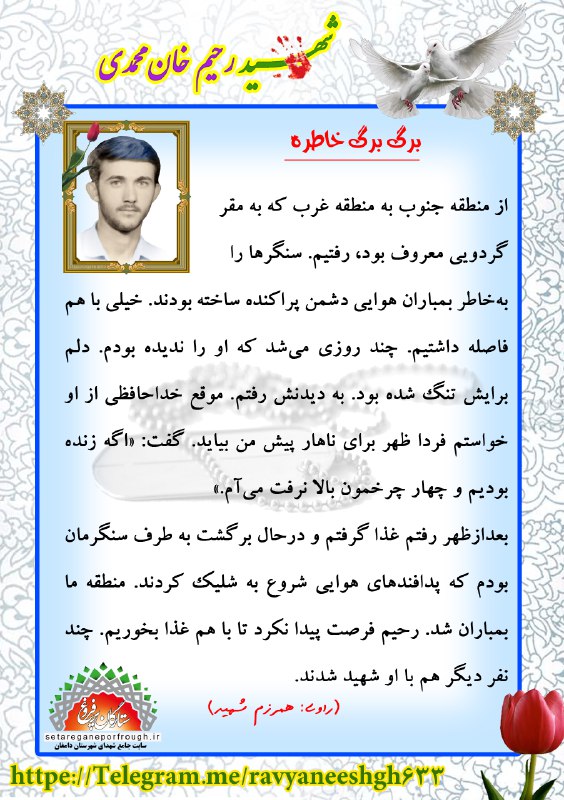 شهید رحیم خان‌محمدی
برگی برگی خاطره
از منطقه جنوب به منطقه غرب که به مقر
گردویی معروف بود، رفتیم. سنگرها را
به‌خاطر بمباران هوایی دشمن پراکنده ساخته بودند. خیلی با هم
فاصله داشتیم. چند روزی می‌شد که او را ندیده بودم. دلم
برایش تنگ شده بود. به دیدنش رفتم. موقع خداحافظی از او
خواستم فردا ظهر برای ناهار پیش من بیاید. گفت: «اگه زنده
بودیم و چهار چرخمون بالا نرفت می‌آم.»
بعدازظهر رفتم غذا گرفتم و درحال برگشت به طرف سنگرمان
بودم که پدافندهای هوایی شروع به شلیک کردند. منطقه ما
بمباران شد. رحیم فرصت پیدا نکرد تا با هم غذا بخوریم. چند
نفر دیگر هم با او شهید شدند.
(راوی: همرزم شهید)
ستارگان پرفروغ
setareganeporfrough.ir
سایت جامع شهدای شهرستان دامغان
https://Telegram.me/ravyaneeshgh۶۳۳